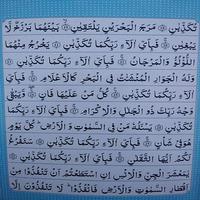 تُكَذِّبٰنِ ۞ مَرَجَ الْبَحْرَيْنِ يَلْتَقِيٰنِ ۞ بَيْنَهُمَا بَرْزَخٌ لَّا
يَبْغِيٰنِ ۞ فَبِاَيِّ اٰلَآءِ رَبِّكُمَا تُكَذِّبٰنِ ۞ يَخْرُجُ مِنْهُمَا
اللُّؤْلُؤُ وَالْمَرْجَانُ ۞ فَبِاَيِّ اٰلَآءِ رَبِّكُمَا تُكَذِّبٰنِ ۞
وَلَهُ الْجَوَارِ الْمُنْشَئٰتُ فِي الْبَحْرِ كَالْاَعْلَامِ ۞ فَبِاَيِّ اٰلَآءِ
رَبِّكُمَا تُكَذِّبٰنِ ۞ كُلُّ مَنْ عَلَيْهَا فَانٍ ۞ وَّيَبْقٰى
وَجْهُ رَبِّكَ ذُو الْجَلٰلِ وَالْاِكْرَامِ ۞ فَبِاَيِّ اٰلَآءِ رَبِّكُمَا
تُكَذِّبٰنِ ۞ يَسْـَٔلُهٗ مَنْ فِي السَّمٰوٰتِ وَالْاَرْضِ ؕ كُلَّ يَوْمٍ
هُوَ فِيْ شَاْنٍ ۞ فَبِاَيِّ اٰلَآءِ رَبِّكُمَا تُكَذِّبٰنِ ۞ سَنَفْرُغُ
لَكُمْ اَيُّهَ الثَّقَلٰنِ ۞ فَبِاَيِّ اٰلَآءِ رَبِّكُمَا تُكَذِّبٰنِ ۞
يٰمَعْشَرَ الْجِنِّ وَالْاِنْسِ اِنِ اسْتَطَعْتُمْ اَنْ تَنْفُذُوْا مِنْ
اَقْطَارِ السَّمٰوٰتِ وَالْاَرْضِ فَانْفُذُوْا ؕ لَا تَنْفُذُوْنَ اِلَّا